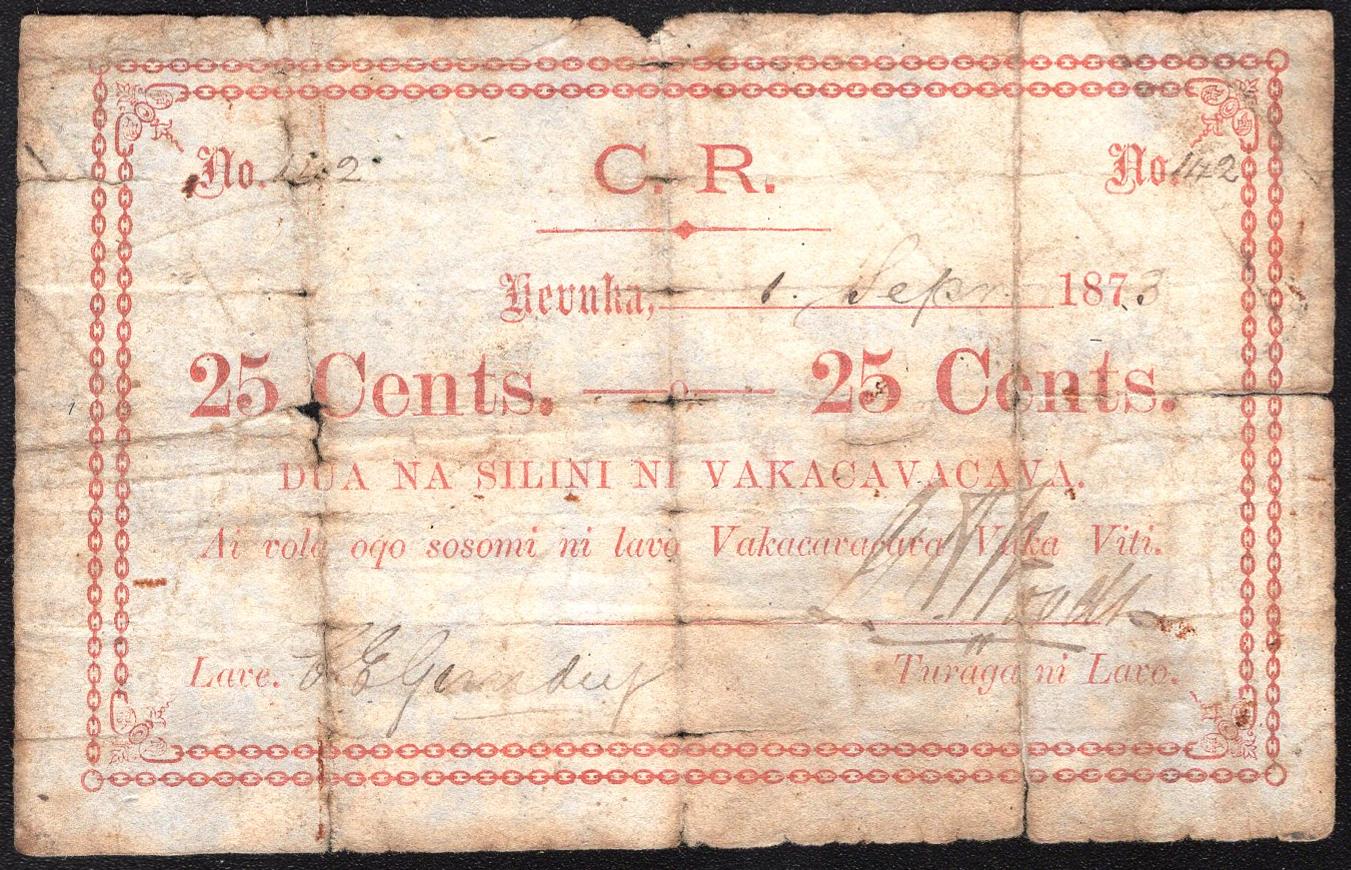 No. 142 C. R. No. 142
Levuka, 1. Sepr. 1873
25 Cents. 25 Cents.
DUA NA SILINI NI VAKACAVACAVA.
Ai vola oqo sosomi ni lavo Vakacavacava Vaka Viti.
Lave. Turaga ni Lavo.